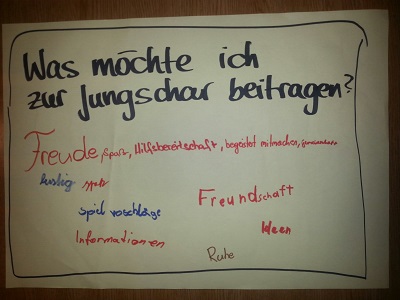 Was möchte ich
zur Jungschar beitragen?
Freude, Spaß, Hilfsbereitschaft, begeistert mitmachen,
lustig
Freundschaft
spiel vorschläge
Informationen
Ideen
Ruhe